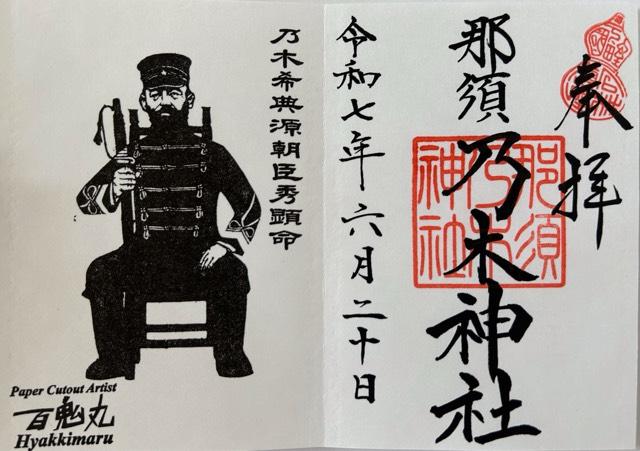 奉拝
那須乃木神社
那須
乃木
神社
令和七年六月二十日
乃木希典源朝臣秀顕命
Paper Cutout Artist
百鬼丸
Hyakkimaru